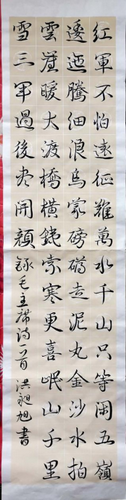 紅軍不怕遠征難萬水千山只等閑五嶺
逶迤騰細浪烏蒙磅礴走泥丸金沙水拍
雲崖暖大渡橋橫鐵索寒更喜岷山千里
雪三軍過後尽開顏 錄毛主席詩一首 洪旭書